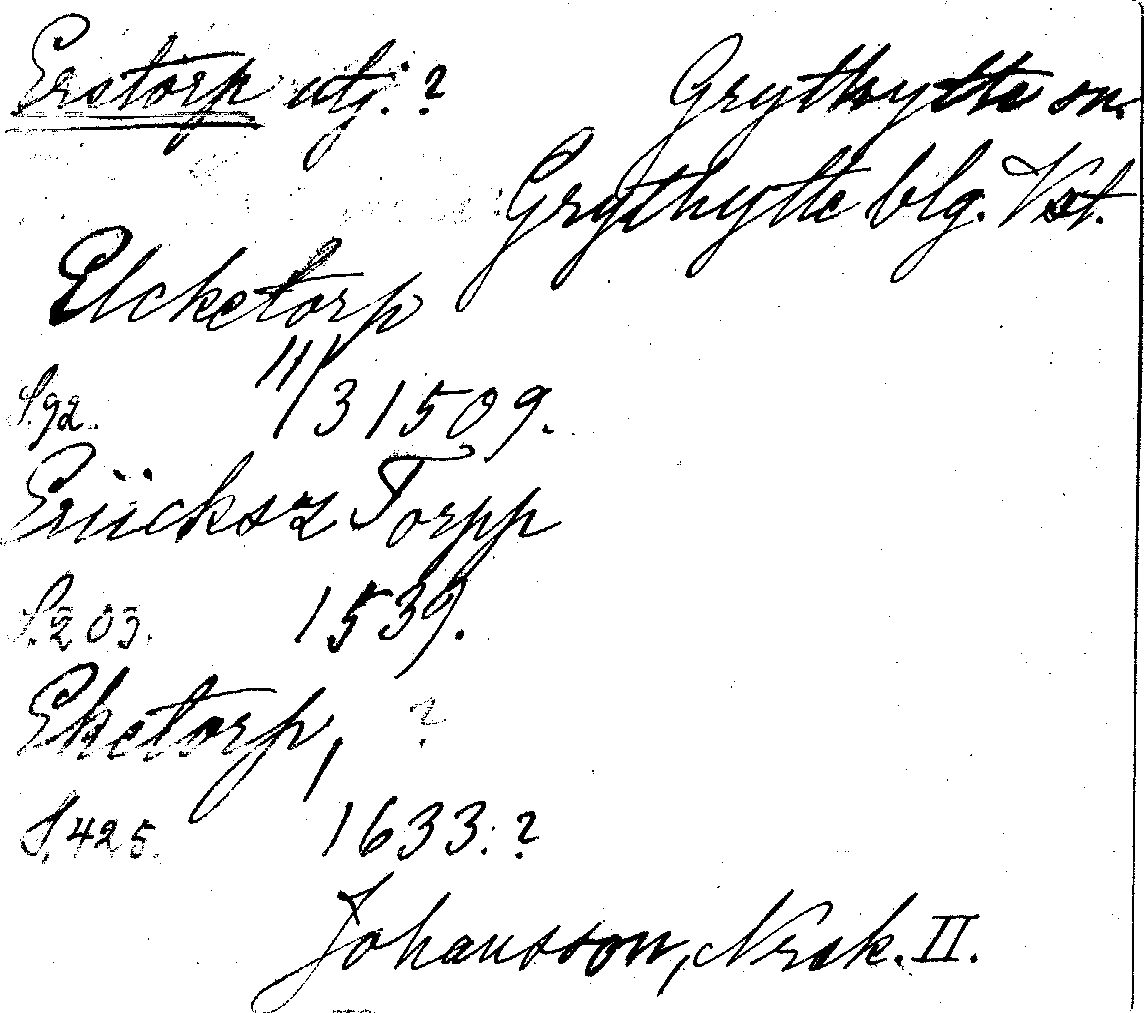 Erstorp utj.? Grythytte sn.
Grythytte blg. Vst.
Elcketorp
S.92. 11/3 1509.
Eriicksz Torpp
S.203. 1539.
Eketorp, ?
S.425. 1633.?
Johansson, Nrsk. II.